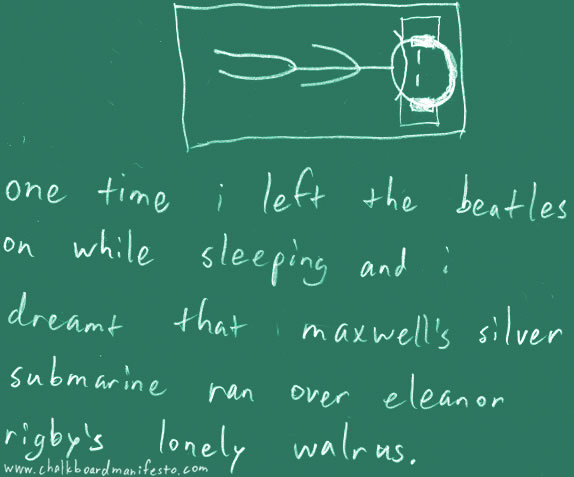 one time i left the beatles
on while sleeping and i
dreamt that maxwell's silver
submarine ran over eleanor
rigby's lonely walrus.
www.chalkboardmanifesto.com